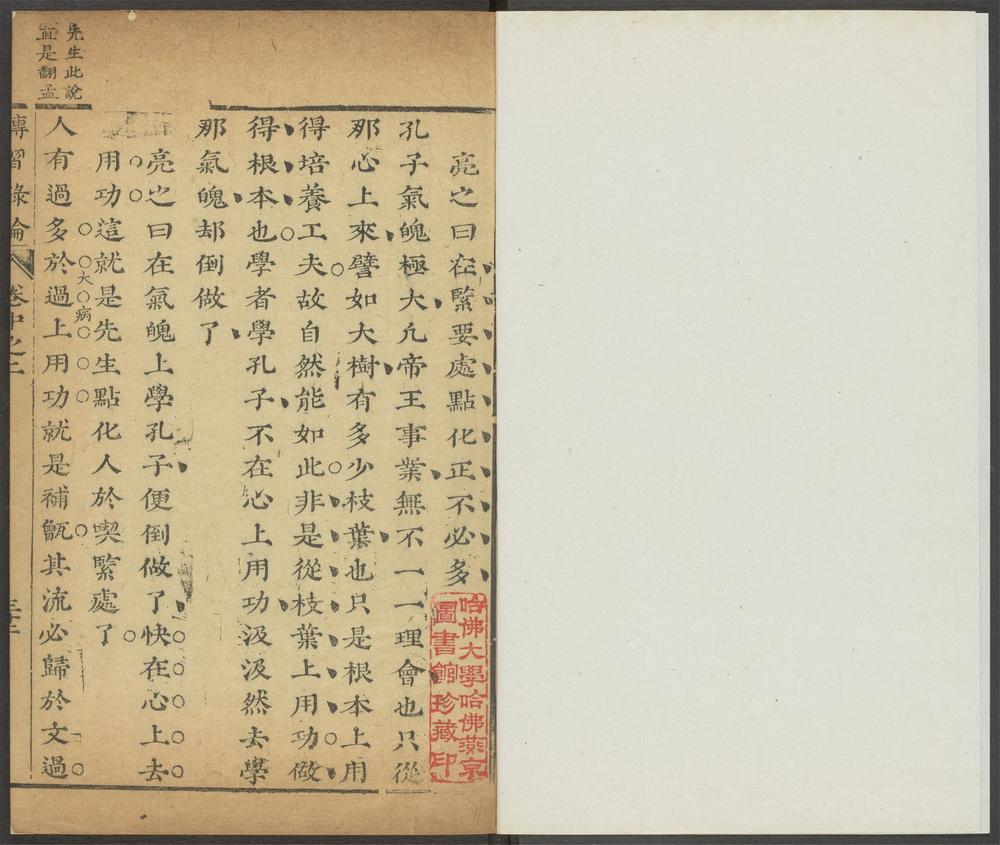 亮之曰在緊要處點化正不必多
孔子氣魄極大凢帝王事業無不一一理會也只從
那心上來譬如大樹有多少枝葉也只是根本上用
得培養工夫故自然能如此非是從枝葉上用功做
得根本也學者學孔子不在心上用功汲汲然去學
那氣魄却倒做了
亮之曰在氣魄上學孔子便倒做了快在心上去
用功這就是先生點化人於喫緊處了
大病
人有過多於過上用功就是補甑其流必歸於文過
先生此說
是翻孟
傳習錄論
卷中之二
哈佛大學哈佛燕京
圖書館珍藏印